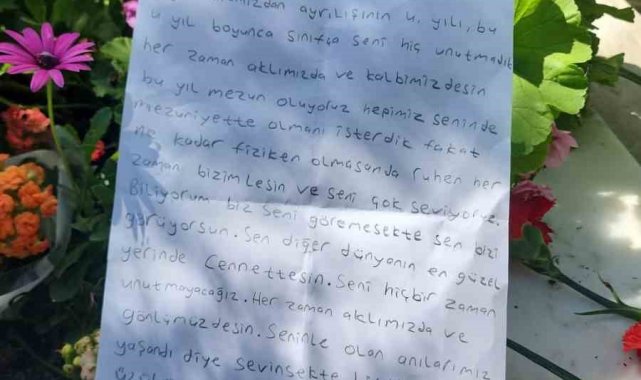 ayrılışının 4. yılı, bu
4 yıl boyunca sınıfça seni hiç unutmadık
her zaman aklımızda ve kalbimizdesin
bu yıl mezun oluyoruz hepimiz seninde
mezuniyette olmanı isterdik fakat
ne kadar fiziken olmasanda ruhen her
zaman bizimlesin ve seni çok seviyoruz.
Biliyorum biz seni göremesekte sen bizi
görüyorsun. Sen diğer dünyanın en güzel
yerinde Cennettesin. Seni hiçbir zaman
unutmayacağız. Her zaman aklımızda ve
gönlümüzdesin. Seninle olan anılarımız
yaşandı diye sevinsekte